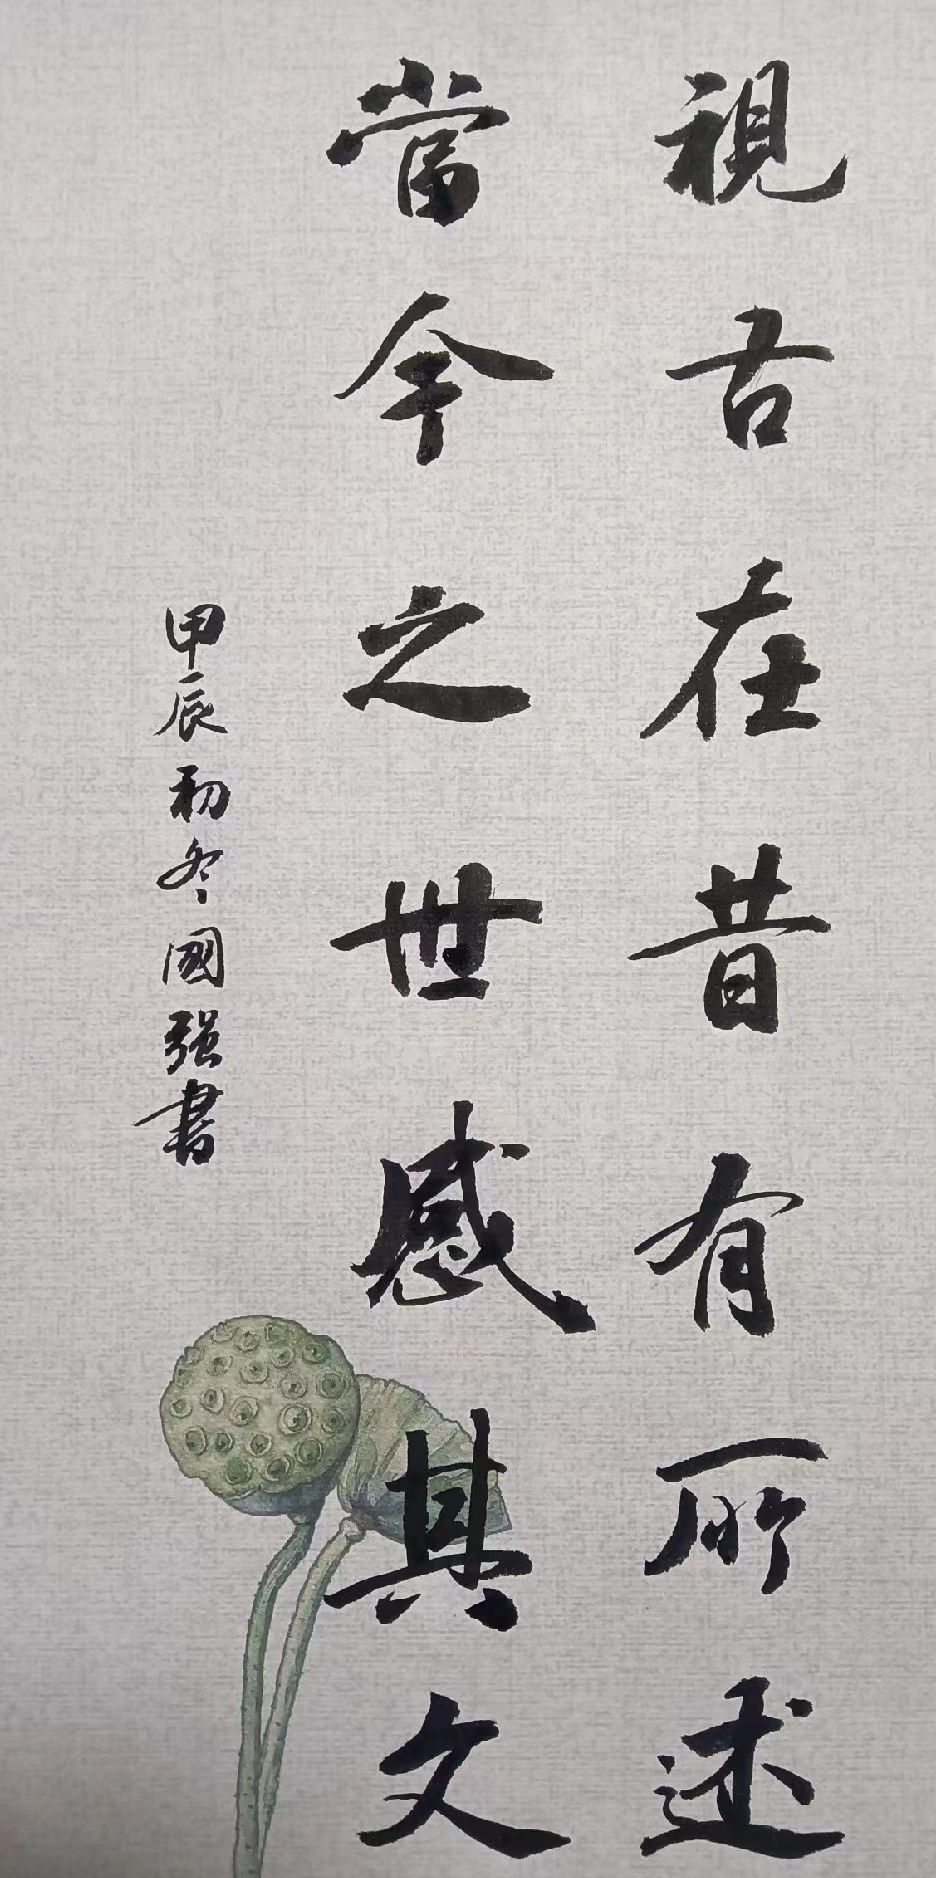 視古在昔有所述
當今之世感其文
甲辰初冬國强書